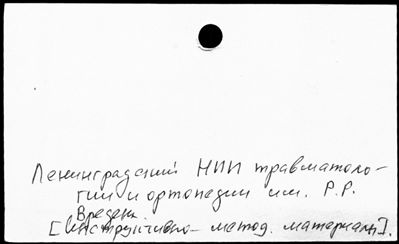 Ленинградский НИИ травматоло-
гии и ортопедии им. Р.Р.
Вредена.
[Инструктивно-метод. материалы].